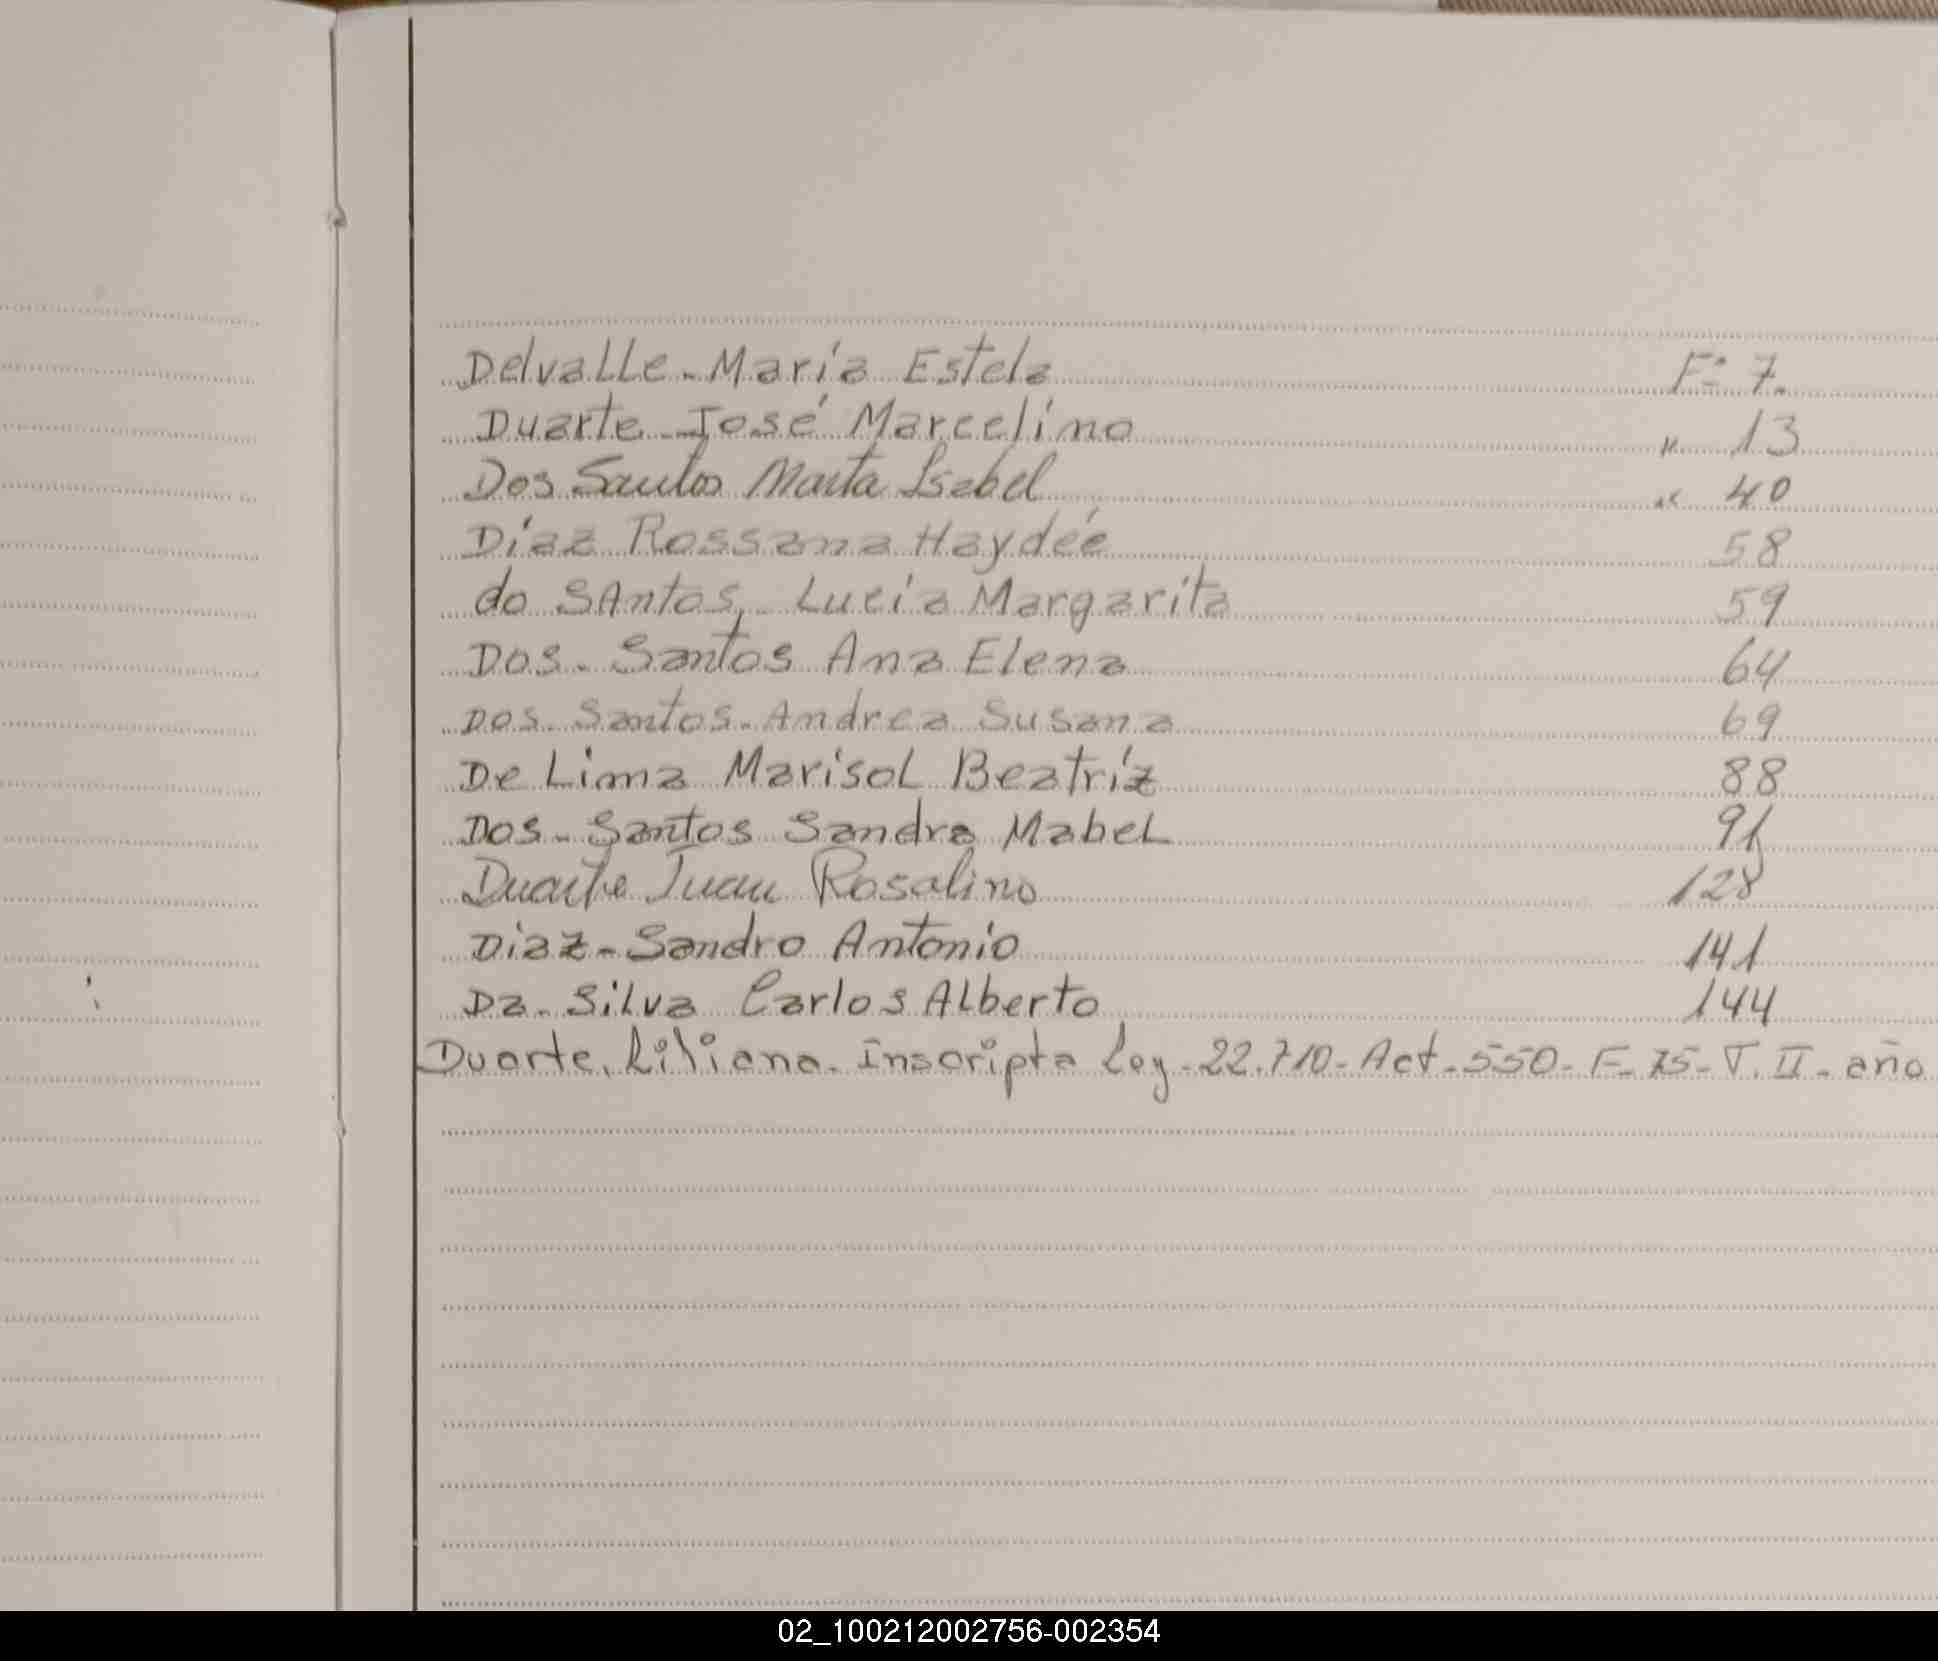 Delvalle-María Estela F= 7.
Duarte-José Marcelino " 13
Dos Santos Marta Isabel " 40
Díaz Rossana Haydée 58
do SAntos, Lucía Margarita 59
Dos-Santos Ana Elena 64
Dos-Santos-Andrea Susana 69
De Lima Marisol Beatríz 88
Dos-Santos Sandra Mabel 91
Duarte Juan Rosalino 128
Diaz-Sandro Antonio 141
Da-Silva Carlos Alberto 144
Duarte, Liliana-Inscripta Ley-22.710-Act-550-F-75-T.II-año
02_100212002756-002354